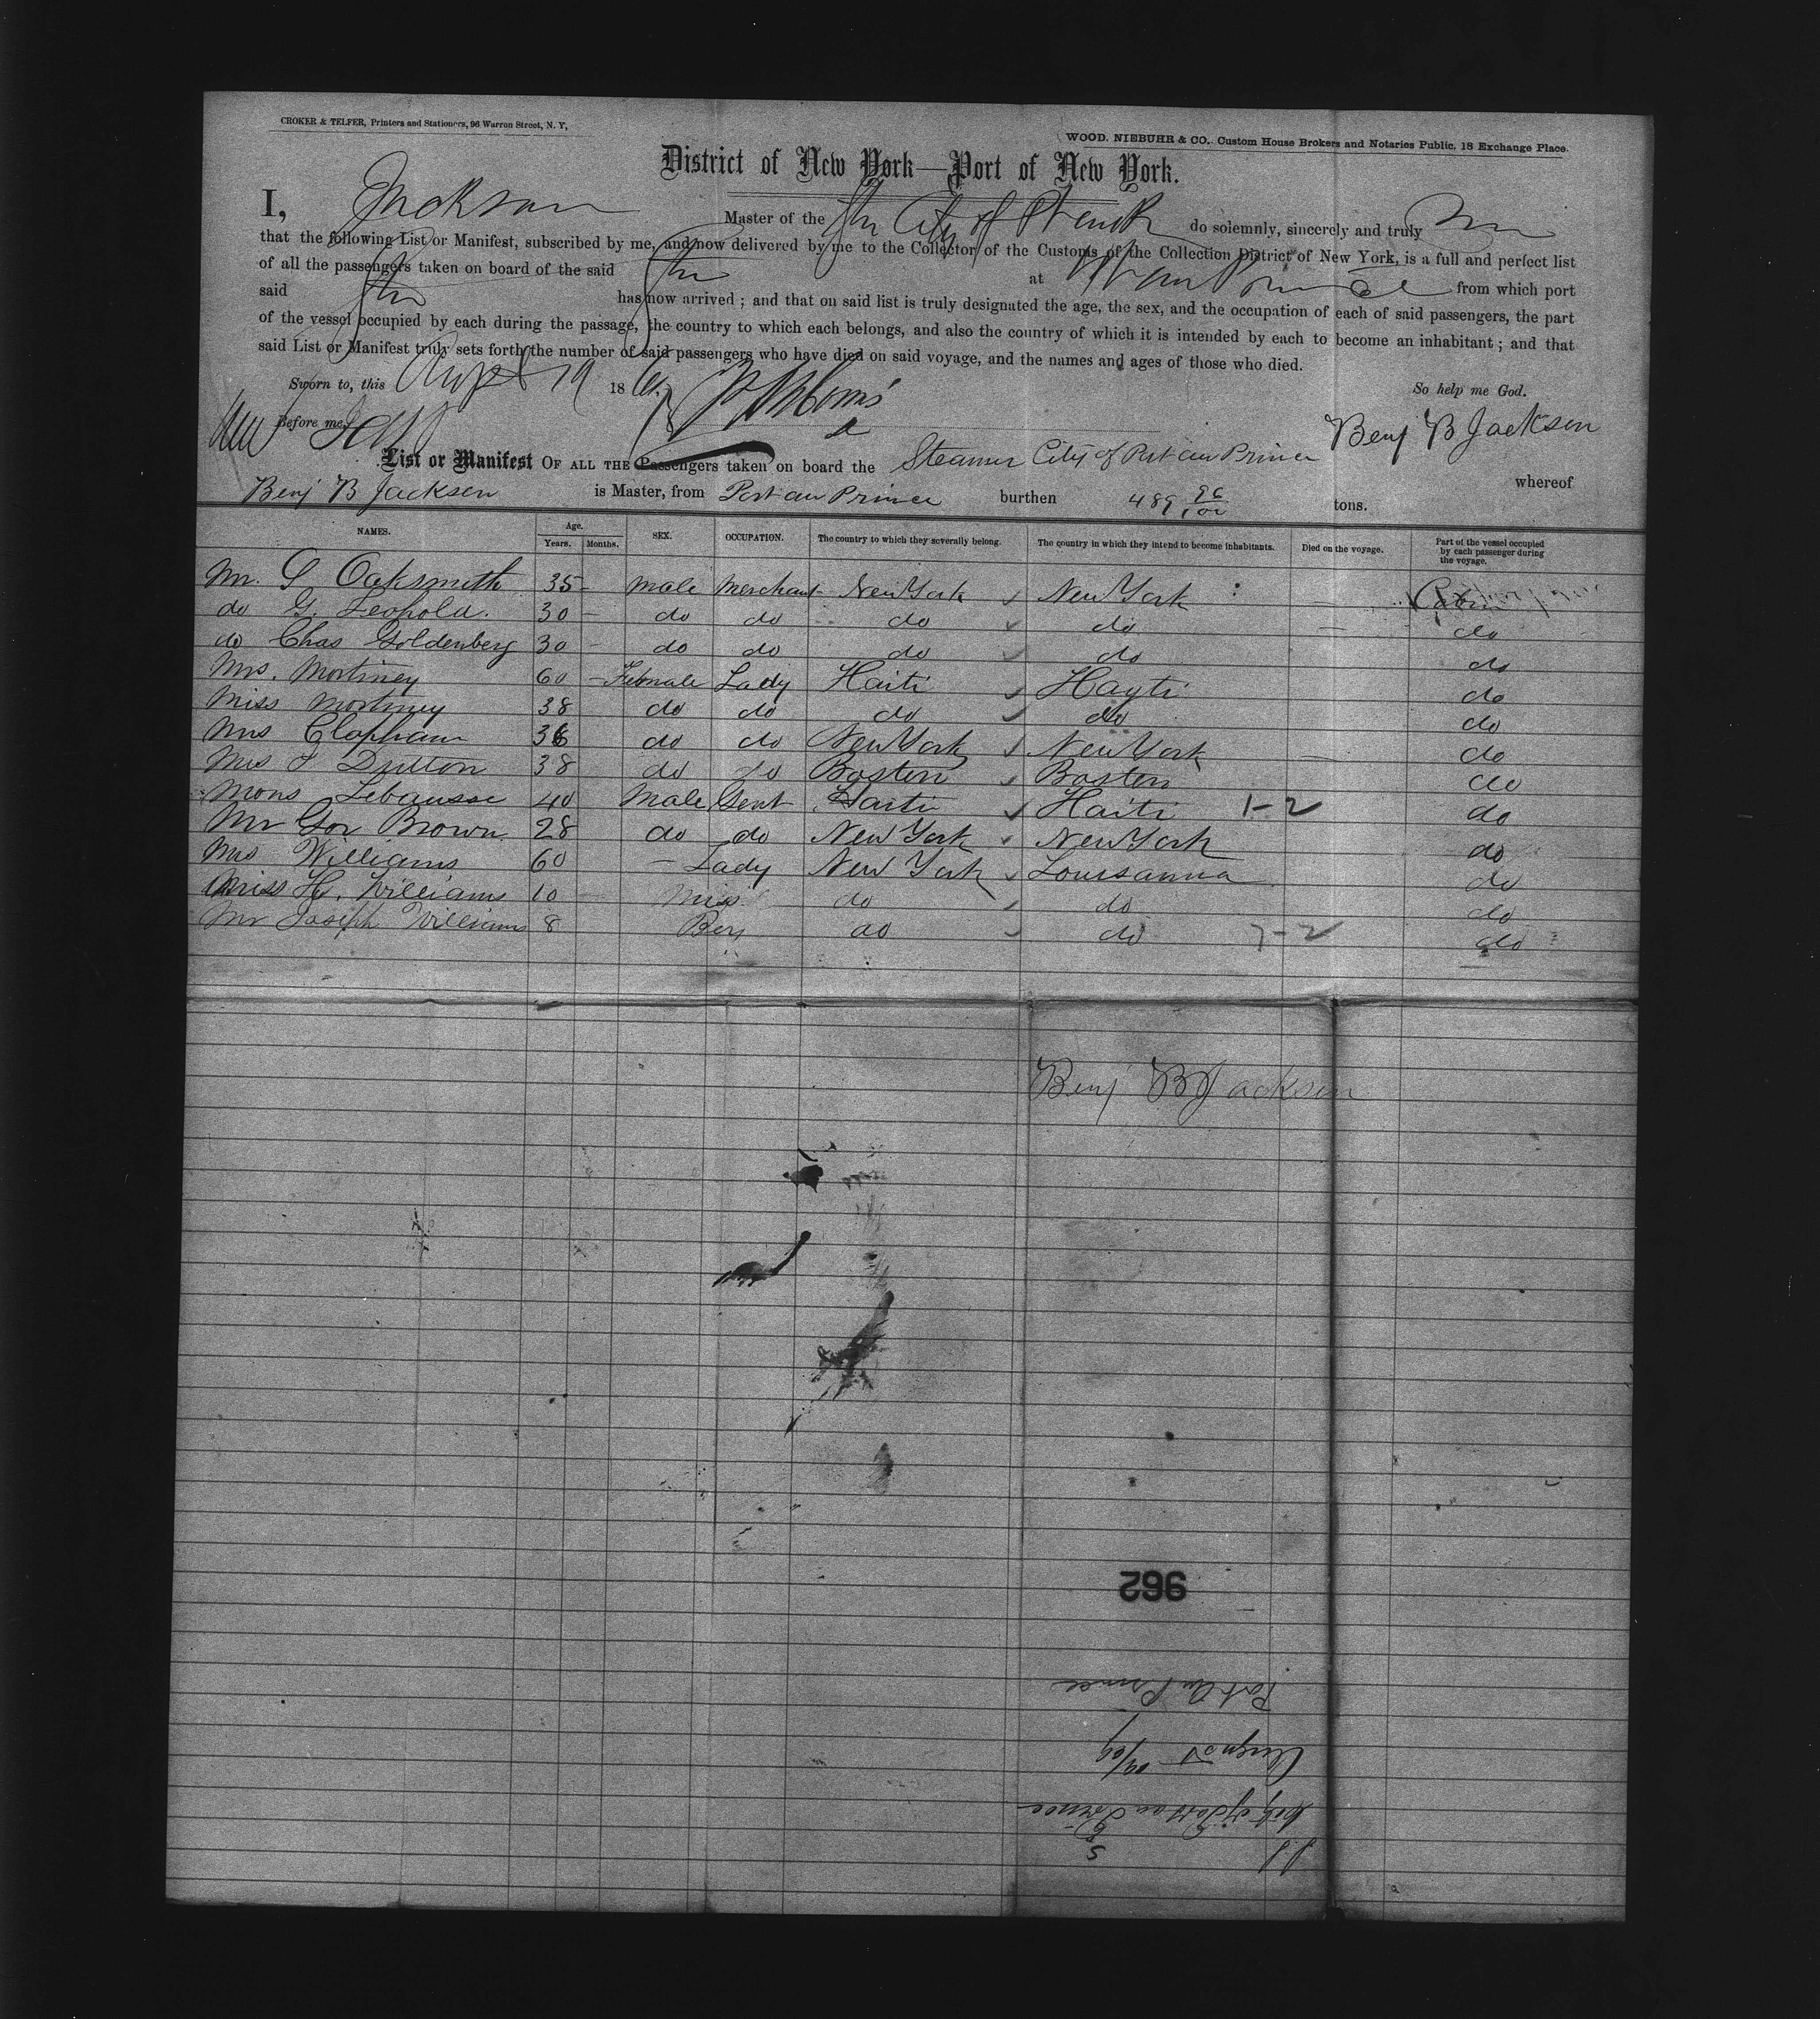 CROKER & TELFER, Printers and Stationers, 96 Warren Street, N. Y,
WOOD. NIEBUHR & CO. Custom House Brokers and Notaries Public, 18 Exchange Place.
District of New York—Port of New York.
I, Jackson Master of the Str City of do solemnly, sincerely and truly
that the following List or Manifest, subscribed by me, and now delivered by me to the Collector of the Customs of the Collection District of New York, is a full and perfect list
of all the passengers taken on board of the said Str at from which port
said Str has now arrived ; and that on said list is truly designated the age, the sex, and the occupation of each of said passengers, the part
of the vessel occupied by each during the passage, the country to which each belongs, and also the country of which it is intended by each to become an inhabitant ; and that
said List or Manifest truly sets forth the number of said passengers who have died on said voyage, and the names and ages of those who died.
Sworn to, this Augst 19 18 So help me God.
Before me, Benj B Jackson
List or Manifest OF ALL THE Passengers taken on board the Steamer City of Port au Prince whereof
Benj B Jackson is Master, from Port au Prince burthen 489 96/100 tons.
NAMES. Age. Years. Months. SEX. OCCUPATION. The country to which they severally belong. The country in which they intend to become inhabitants. Died on the voyage. Part of the vessel occupied by each passenger during the voyage.
Mr. S Oaksmith 35 - male merchant New York New York - Cabin
do G. Leopold. 30 - do do do do - do
do Chas Goldenberg 30 - do do do do do
Mrs. Mortiney 60 - Female Lady Haiti Hayti do
Miss Mortiney 38 do do do do do
Mrs Clapham 36 do do New York New York do
Mrs Dutton 38 do do Boston Boston do
Mons Lebausse 40 Male Gent Haiti Haiti 1-2 do
Mr Gor Brown 28 do do New York New York do
Mrs Williams 60 - Lady New York Lousanna do
Miss H. Williams 10 Miss do do do
Mr Joseph Williams 8 Boy do do 7-2 do
Benj B Jackson
962
Port au Prince
August
City of Port au Prince
SS